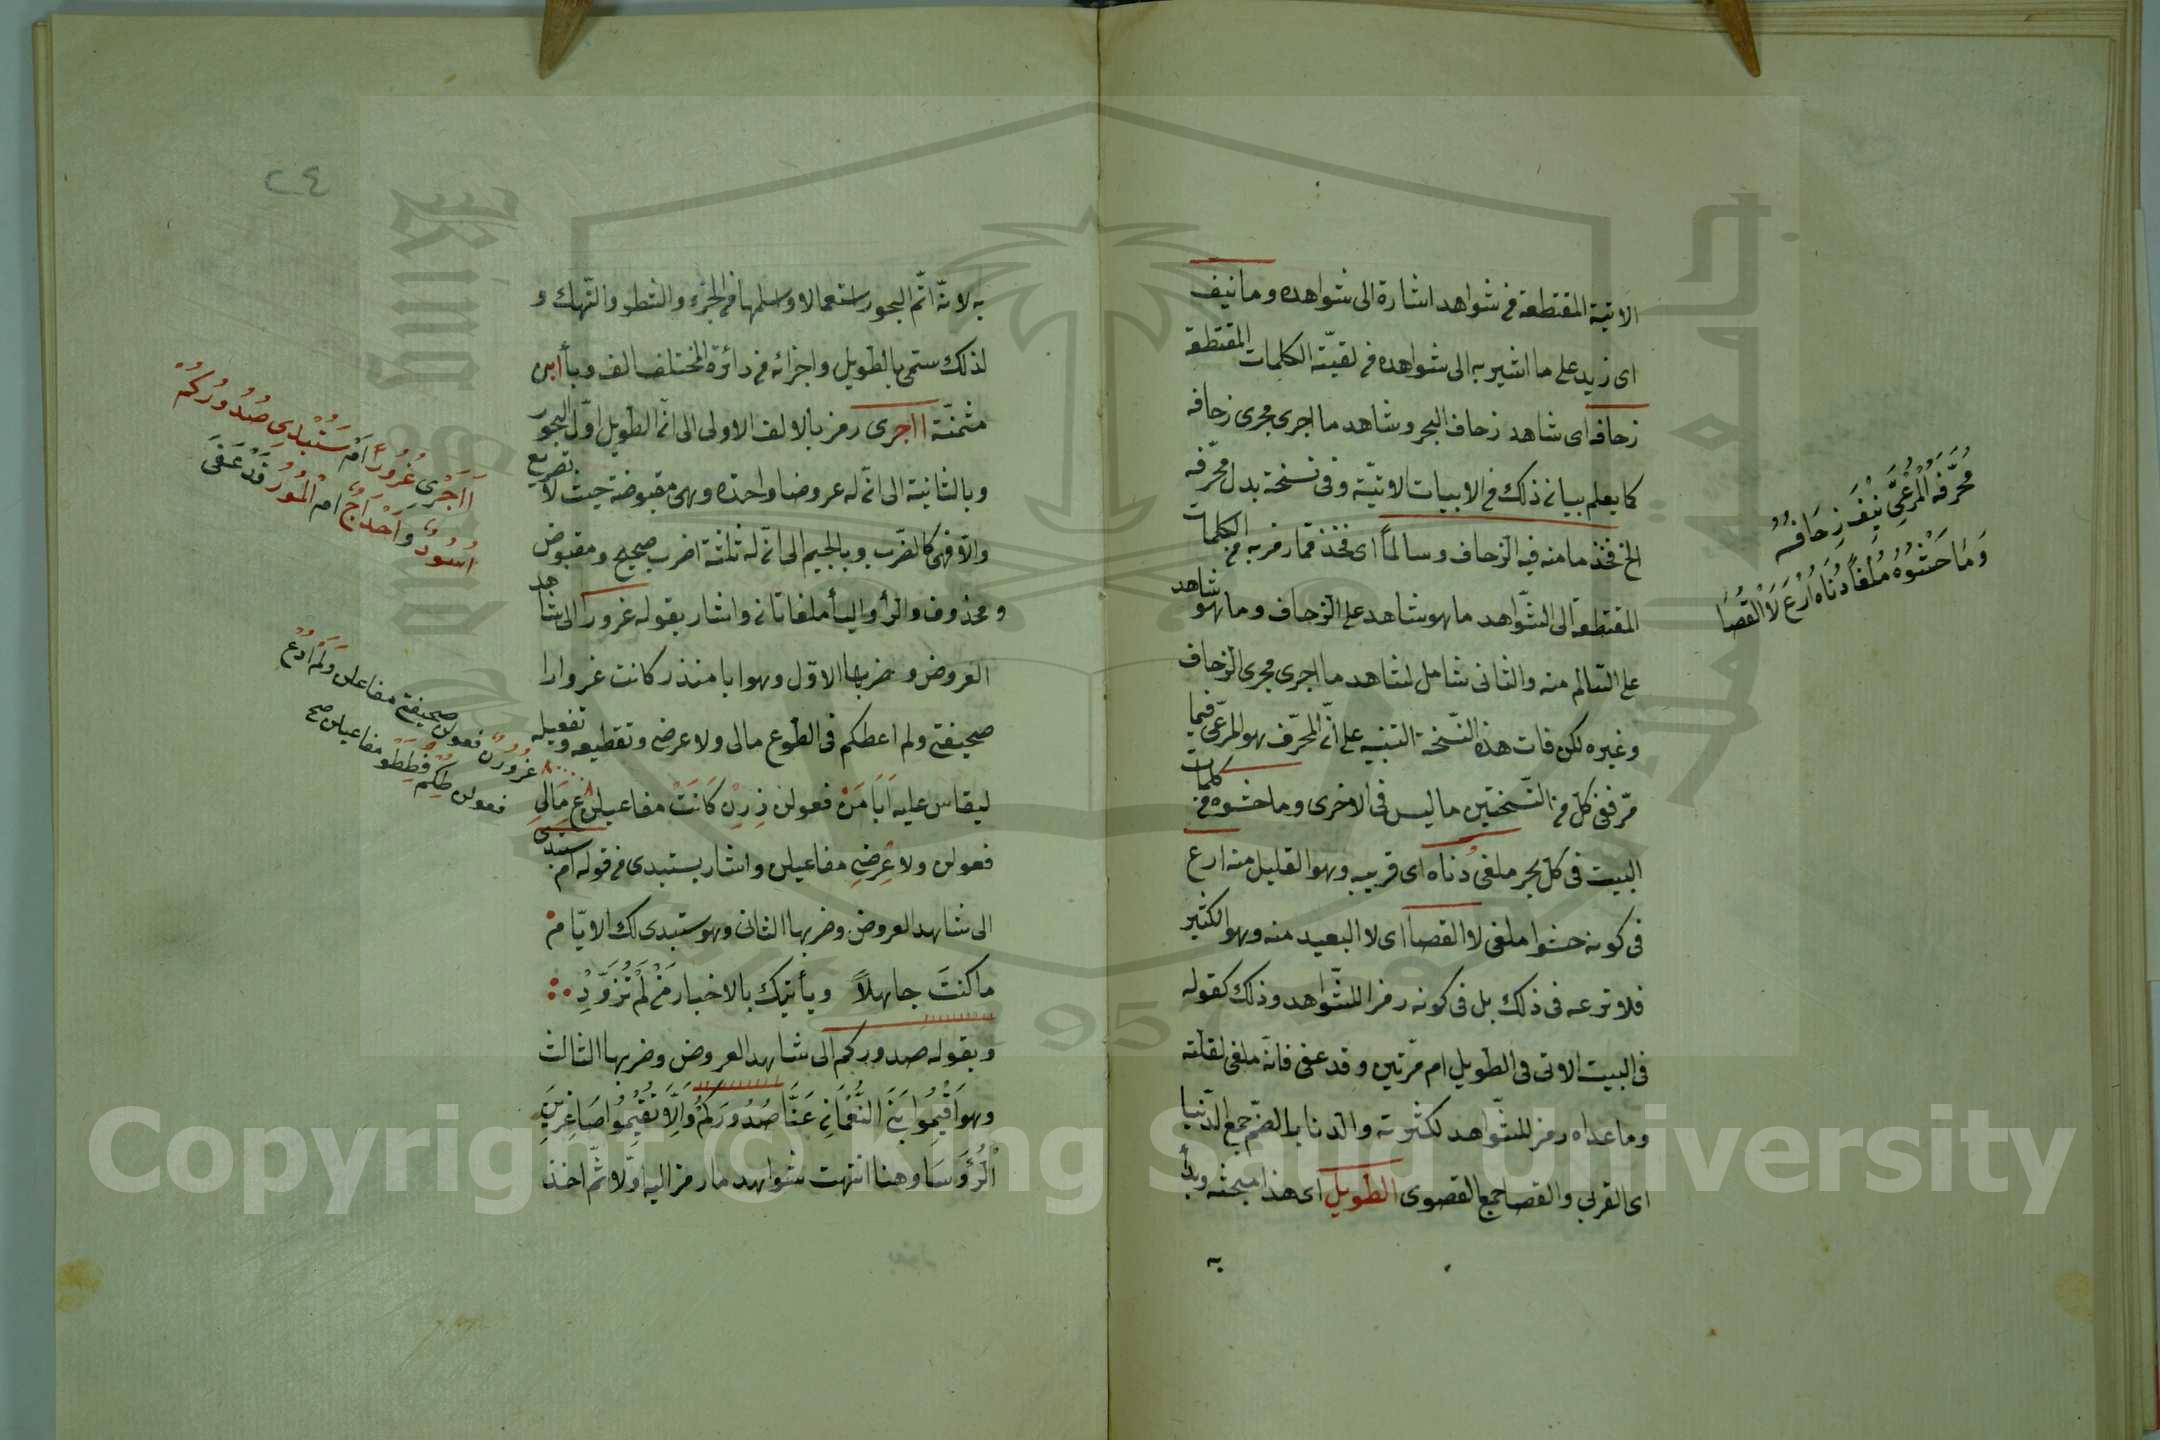 الاتية المقتطعة في شواهد اشارة الى شواهده وما نيف
اى زيد على ما اشير به الى شواهده في لقيته الكلمات المقتطعة
زحافه اى شاهد زحاف البحر وشاهد ما اجرى مجرى زحافه
كما يعلم بيانه ذلك في الابيات الاتية وفى نسخة بدل محرفه
الخ فخذ ما منه فيه الزحاف وسالما اى فخذ مما رمز به من الكلمات
المقتطعة الى الشواهد ما هو شاهد على الزحاف وما هو شاهد
على السالم منه والثانى شامل لشاهد ما اجرى مجرى الزحاف
وغيره لكن فات هذه النسخة التنبيه على ان المحرف هو المرعى فيما
مر ففى كل من النسختين ما ليس فى الاخرى وما حشوه من كلمات
البيت فى كل بحر ملغى دناه اى قريبه وهو القليل منه ارع
فى كونه حشوا ملغى لا القصا اى لا البعيد منه وهو الكثير
فلا ترعه فى ذلك بل فى كونه رمزا للشواهد وذلك كقوله
فى البيت الاتى فى الطويل ام مرتين وقد عفى فانه ملغى لقلته
وما عداه رمز للشواهد لكثرته والدنا بالضم جمع الدنيا
اى القربى والقصا جمع القصوى الطويل اى هذا مبحثه وبدأ
به
محرفه المرعى نيف زحافه
وما حشوه ملغا دناه ارع لا القصا
٢٤
به لانه اتم البحور استعمالا وسلمها من الجزء والشطر والنهك و
لذلك سمى بالطويل واجزائه في دائرة المختلف الف وبا ابن
مثمنة ااجرى رمز بالالف الاولى الى ان الطويل اول البحور
وبالثانية الى ان له عروضا واحدة وهى مقبوضة حيث لا تصريع
والا فهى كالضرب وبالجيم الى ان له ثلثة اضرب صحيح ومقبوض
ومحذوف والرأ واليأ ملغاتان واشار بقوله غرورا الى شاهد
العروض وضربها الاول وهو ابا منذر كانت غرورا
صحيفتى ولم اعطكم فى الطوع مالى ولا عرضى وتقطيعه وتفعيله
ليقاس عليه اَبَا مُنْ فعولن ذِرِنْ كَانَتْ مفاعيلن عِ مَالِى
فعولن ولا عِرْضِى مفاعيلن واشار بستبدى في قوله ام ستبدى
الى شاهد العروض وضربها الثانى وهو ستبدى لك الايام
ما كنتَ جاهلاً ويأتيك بالاخبار مَنْ لَمْ تُزَوِّدِ
وبقوله صدوركم الى شاهد العروض وضربها الثالث
وهو اَقِيمُوا بَنِى النُّعْمَانِ عَنَّا صُدُورَكُمْ وَاِلَّا تُقِيمُوا صَاغِرِينَ
الرُّؤَسَا وهنا انتهت شواهد ما رمز اليه اولا ثم اخذ
أَاَجْرَى غُرُورًا اَمْ سَتُبْدِى صُدُورُكُمْ
اُسُودٌ وَاَحْدَاجٌ اَمِ الْمُورُ قَدْ عَفَى
غُرُورَنْ فعولن صحيفتى مفاعلن وَلَمْ اُعْ
فعولن طِكُمْ فِطْطَوْ مفاعيلن صح